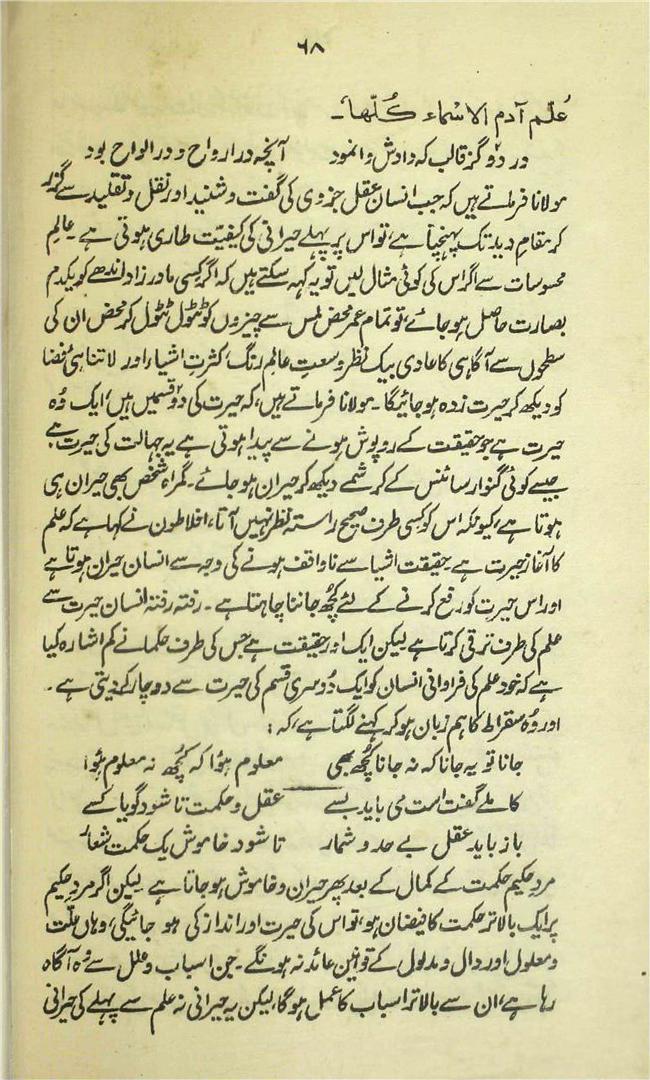 ۶۸
عُلّم آدم الاسْماء کُلّھا۔
در دو گز قالب کہ دادش وانمود آنچہ در ارواح و در الواح بود
مولانا فرماتے ہیں کہ جب انسان عقل جزوی کی گفت و شنید اور نقل و تقلید سے گزر
کر مقامِ دید تک پہنچتا ہے، تو اس پر پہلے حیرانی کی کیفیّت طاری ہوتی ہے۔ عالمِ
محسوسات سے اگر اس کی کوئی مثال لیں تو یہ کہہ سکتے ہیں کہ اگر کسی مادر زاد اندھے کو یکدم
بصارت حاصل ہو جائے، تو تمام عمر محض لمس سے چیزوں کو ٹٹول ٹٹول کر محض ان کی
سطحوں سے آگاہی کا عادی بیک نظر وسعتِ عالمِ رنگ، کثرتِ اشیاء اور لا تناہی فضا
کو دیکھ کر حیرت زدہ ہو جائیگا۔ مولانا فرماتے ہیں، کہ حیرت کی دو قسمیں ہیں، ایک وُہ
حیرت ہے جو حقیقت کے روپوش ہونے سے پیدا ہوتی ہے یہ جہالت کی حیرت ہے
جیسے کوئی گنوار سائنس کے کرشمے دیکھ کر حیران ہو جائے۔ گمراہ شخص بھی حیران ہی
ہوتا ہے، کیونکہ اس کو کسی طرف صحیح راستہ نظر نہیں آتا، افلاطون نے کہا ہے کہ علم
کا آغاز حیرت ہے حقیقت اشیا سے ناواقف ہونے کی وجہ سے انسان حیران ہوتا ہے
اور اس حیرت کو رفع کرنے کے لئے کُچھ جاننا چاہتا ہے۔ رفتہ رفتہ انسان حیرت سے
علم کی طرف ترقی کرتا ہے لیکن ایک اور حقیقت ہے جس کی طرف حکما نے کم اشارہ کیا
ہے کہ خود علم کی فراوانی انسان کو ایک دُوسری قسم کی حیرت سے دوچار کر دیتی ہے۔
اور وُہ سقراط کا ہم زبان ہو کر کہنے لگتا ہے، کہ :
جانا تو یہ جانا کہ نہ جانا کُچھ بھی معلوم ہؤا کہ کُچھ نہ معلوم ہؤا
کاملے گفت است می باید بسے عقل و حکمت تا شود گویا کسے
باز باید عقل بے حد و شمار تا شود خاموش یک حکمت شعار
مردِ حکیم حکمت کے کمال کے بعد پھر حیران و خاموش ہو جاتا ہے لیکن اگر مردِ حکیم
پر ایک بالا تر حکمت کا فیضان ہو، تو اس کی حیرت اور انداز کی ہو جائیگی، وہاں علّت
و معلول اور دال و مدلول کے قوانین عائد نہ ہونگے۔ جن اسباب و علل سے وہ آگاہ
رہا ہے، ان سے بالا تر اسباب کا عمل ہو گا، لیکن یہ حیرانی نہ علم سے پہلے کی حیرانی